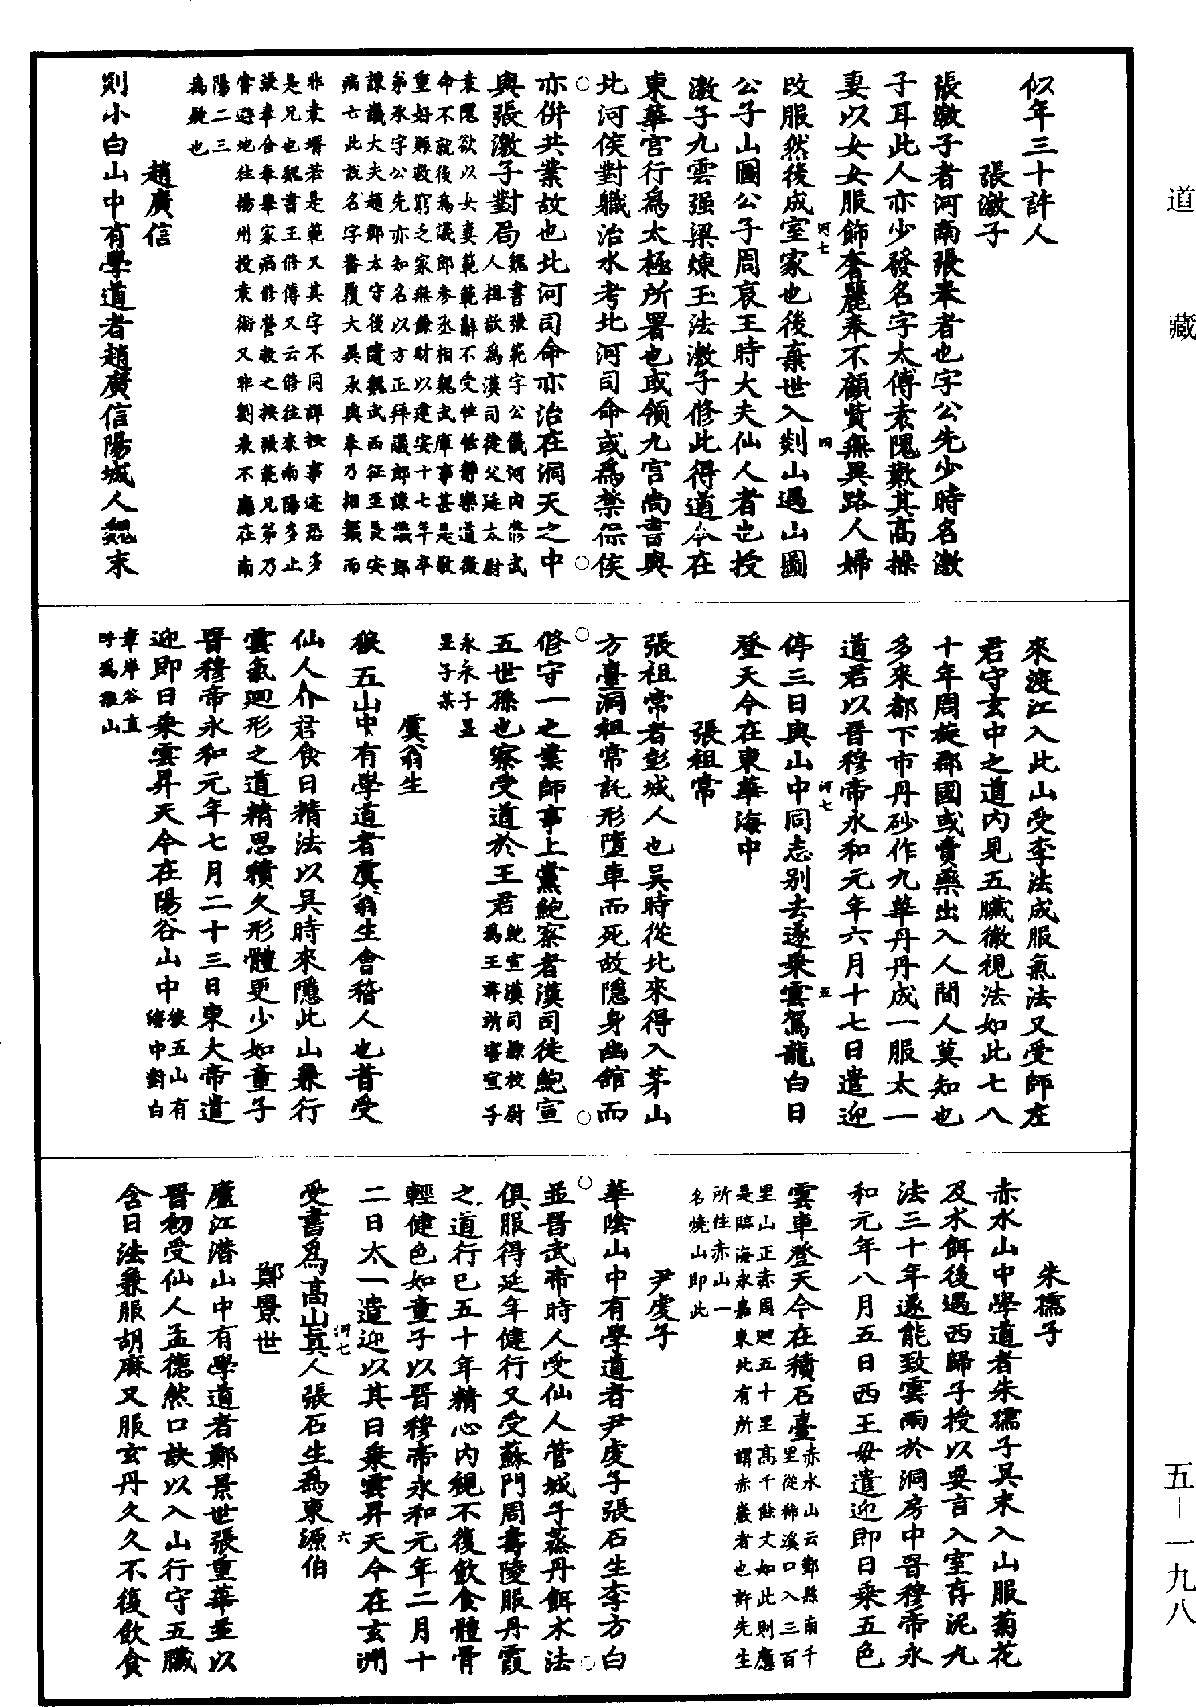 道藏
五－一九八
似年三十許人
張激子
張激子者河南張奉者也字公先少時名激
子耳此人亦少發名字太傅袁隗歎其高操
妻以女女服飾奢麗奉不顧貲無異路人婦
改服然後成室家也後棄世入剡山遇山圖
公子山圖公子周哀王時大夫仙人者也授
激子九雲强梁煉玉法激子修此得道今在
東華宮行爲太極所署也或領九宮尚書與
北河侯對職治水考北河司命或爲禁保侯
亦併共業故也北河司命亦治在洞天之中
與張激子對局
魏書張範字公儀河内修武
人祖歆爲漢司徒父延太尉
袁隗欲以女妻範範辭不受性恬靜樂道徵
命不就後爲議郎參丞相魏武庫事甚是敬
重好賑救窮乏家無餘財以建安十七年卒
弟承字公先亦知名以方正拜議郎諫議郎
諫議大夫趙郡太守後隨魏武西征至長安
病亡此說名字番覆大異承與奉乃相類而
非袁壻若是範又其字不同詳檢事迹恐多
是兄也魏書王修傳又云修往來南陽多止
張奉舍奉舉家病修營救之按張範兄弟乃
嘗避地往揚州投袁術又非劉表不應在南
陽二三
爲疑也
趙廣信
則小白山中有學道者趙廣信陽城人魏末
來渡江入此山受李法成服氣法又受師左
君守玄中之道内見五臟徹視法如此七八
十年周旋郡國或賣藥出入人間人莫知也
多來都下市丹砂作九華丹丹成一服太一
道君以晉穆帝永和元年六月十七日遣迎
停三日與山中同志别去遂乘雲駕龍白日
登天今在東華海中
張祖常
張祖常者彭城人也吳時從北來得入茅山
方臺洞祖常託形墮車而死故隱身幽舘而
修守一之業師事上黨鮑察者漢司徒鮑宣
五世孫也察受道於王君
鮑宣漢司隸校尉
爲王莽所害宣子
永永子昱
昱子某
虞翁生
狼五山中有學道者虞翁生會稽人也昔受
仙人介君食日精法以吳時來隱此山兼行
雲氣廻形之道精思積久形體更少如童子
晉穆帝永和元年七月二十三日東大帝遣
迎即日乘雲昇天今在陽谷山中
狼五山有
海中對白
章岸谷直
呼爲狼山
朱孺子
赤水山中學道者朱孺子吳末入山服菊花
及朮餌後遇西歸子授以要言入室存泥丸
法三十年遂能致雲雨於洞房中晉穆帝永
和元年八月五日西王母遣迎即日乘五色
雲車登天今在積石臺
赤水山云鄞縣南千
里從柿溪口入三百
里山正赤周廻五十里高千餘丈如此則應
是臨海永嘉東北有所謂赤巖者也許先生
所住赤山一
名燒山即此
尹虔子
華陰山中有學道者尹虔子張石生李方白
並晉武帝時人受仙人管城子蒸丹餌朮法
俱服得延年健行又受蘇門周壽陵服丹霞
之道行已五十年精心内視不復飲食體骨
輕健色如童子以晉穆帝永和元年二月十
二日太一遣迎以其日乘雲昇天今在玄洲
受書爲高山真人張石生爲東源伯
鄭景世
廬江潛山中有學道者鄭景世張重華並以
晉初受仙人孟德然口訣以入山行守五臟
含日法兼服胡麻又服玄丹久久不復飲食
河七
四
河七
五
河七
六